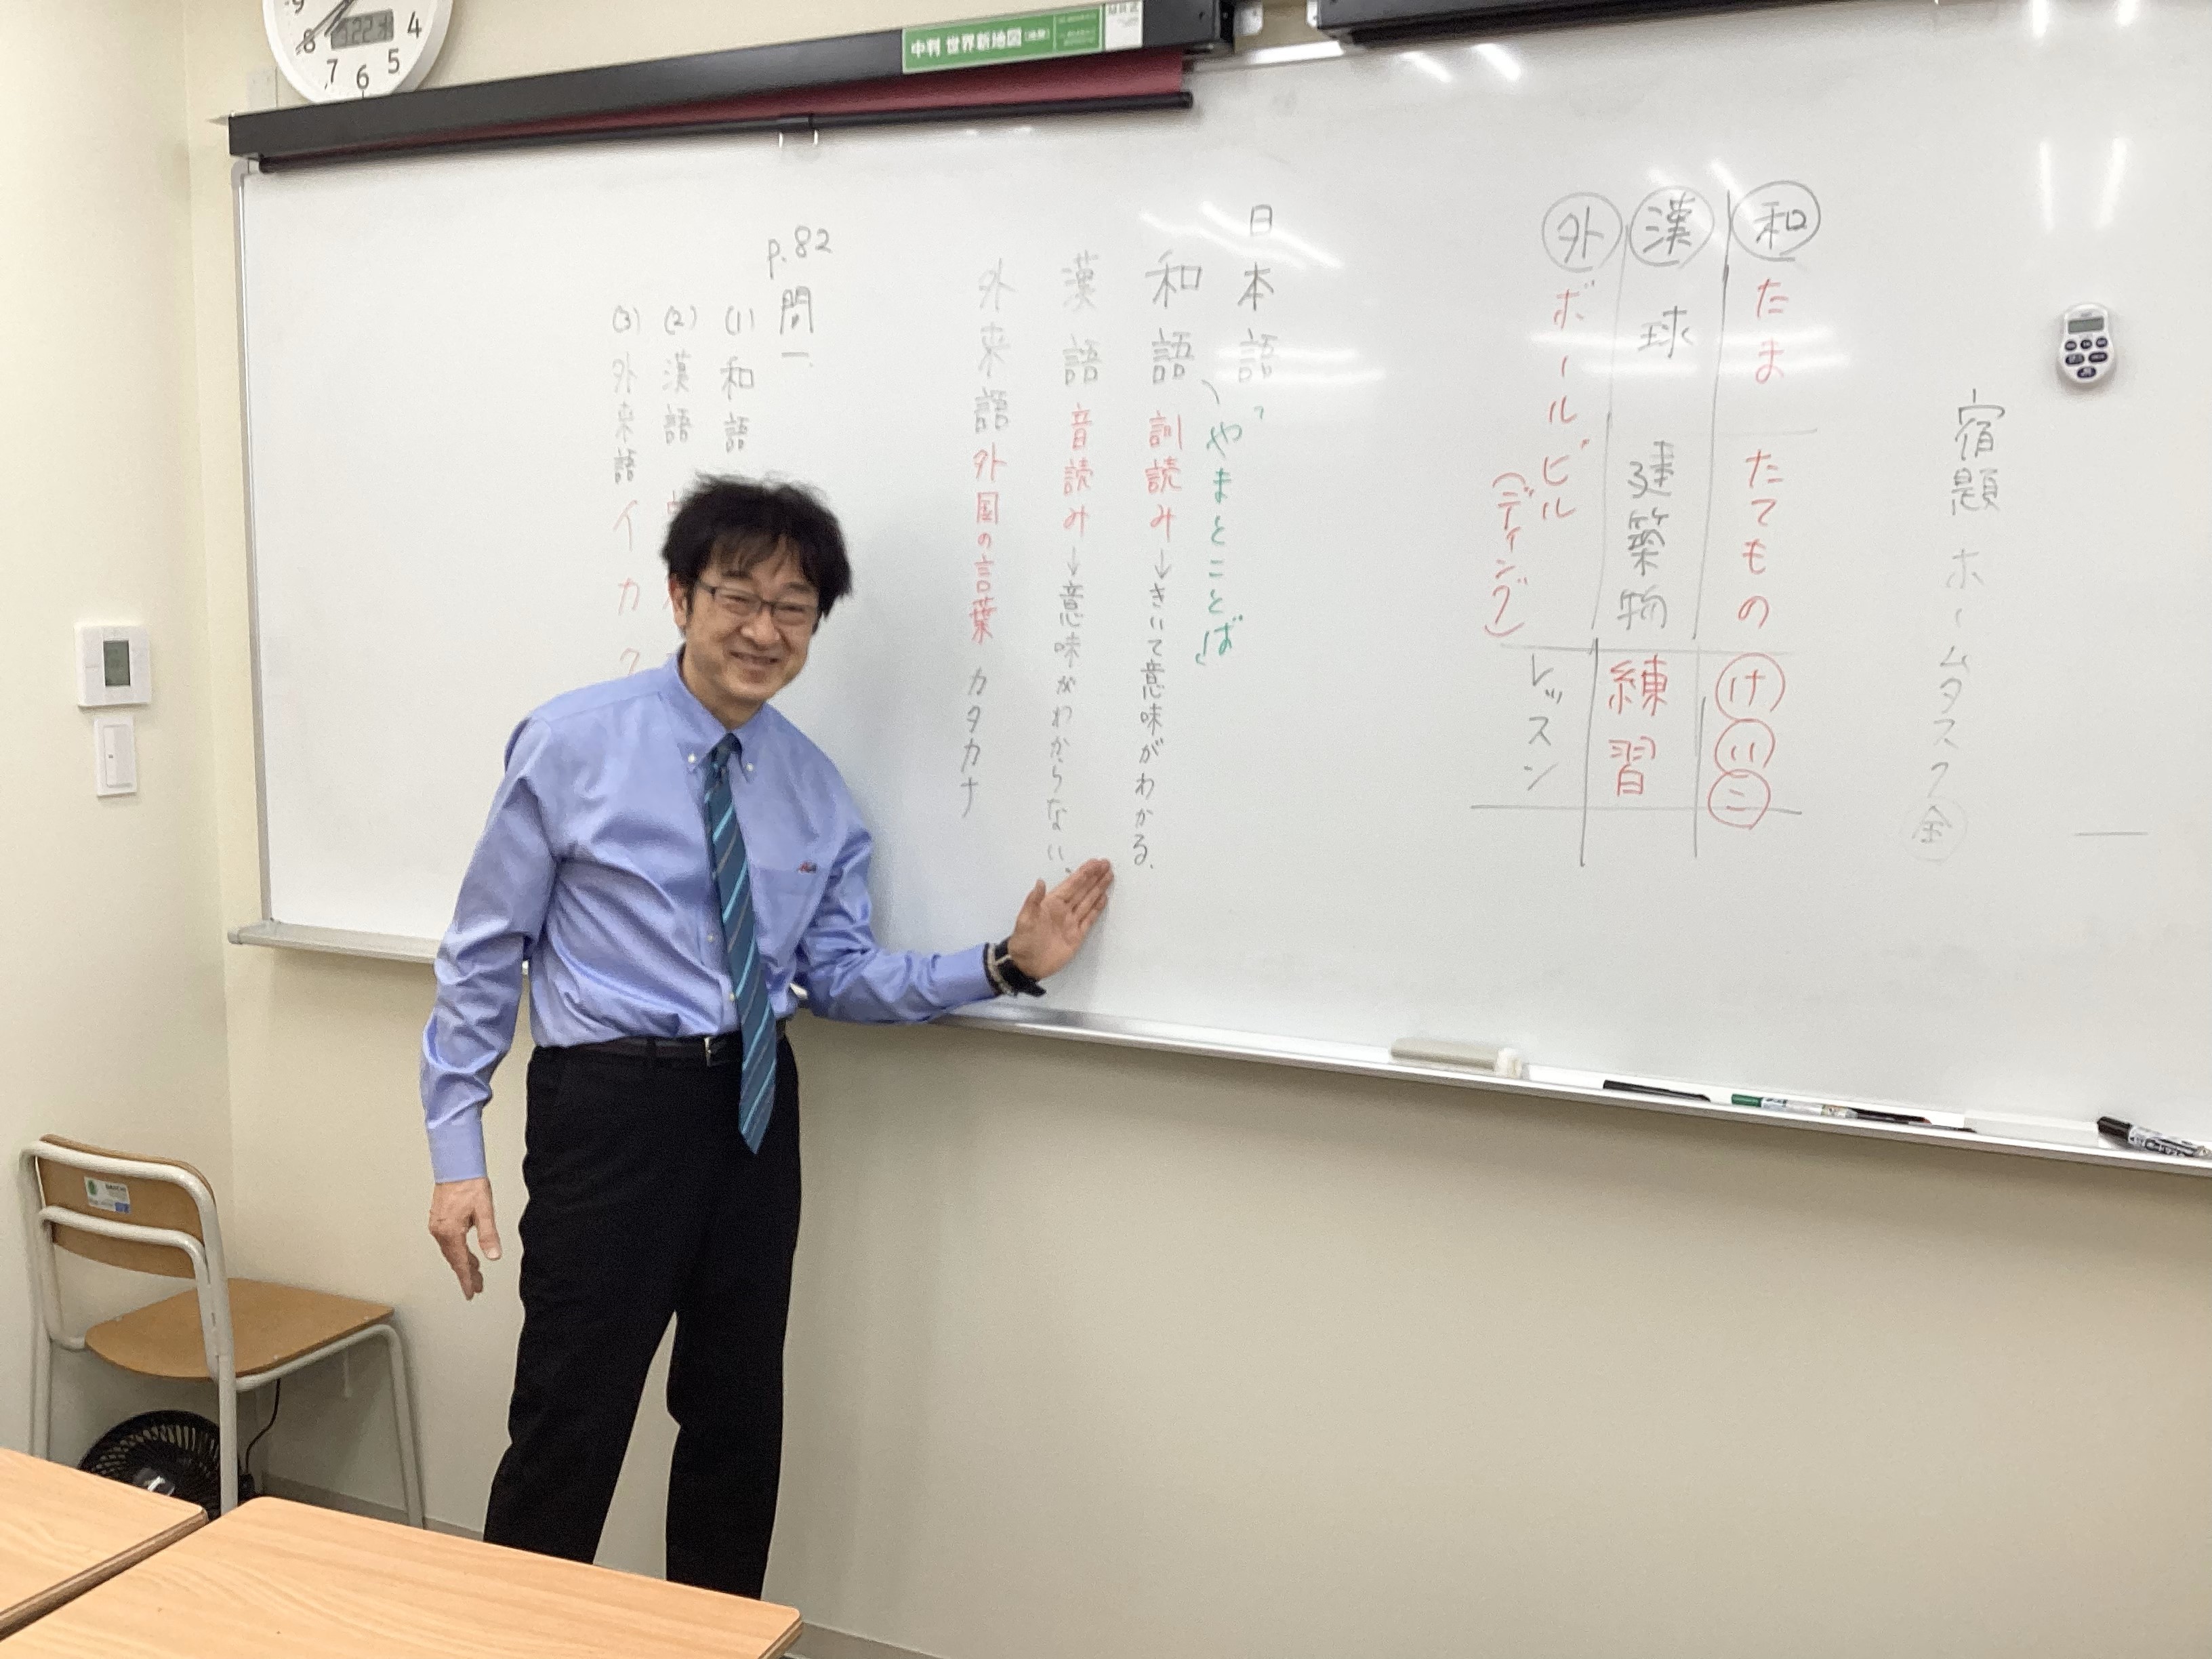 宿題 ホームタスク 金
和 たま たてもの けいこ
漢 球 建築物 練習
外 ボール ビル レッスン
(ディング)
日本語
「やまとことば」
和語 訓読み→きいて意味がわかる。
漢語 音読み→意味がわからない。
外来語 外国の言葉 カタカナ
p.82
問一
(1) 和語
(2) 漢語
(3) 外来語 イ カ ク
中判 世界新地図
9
8
7
6
5
4